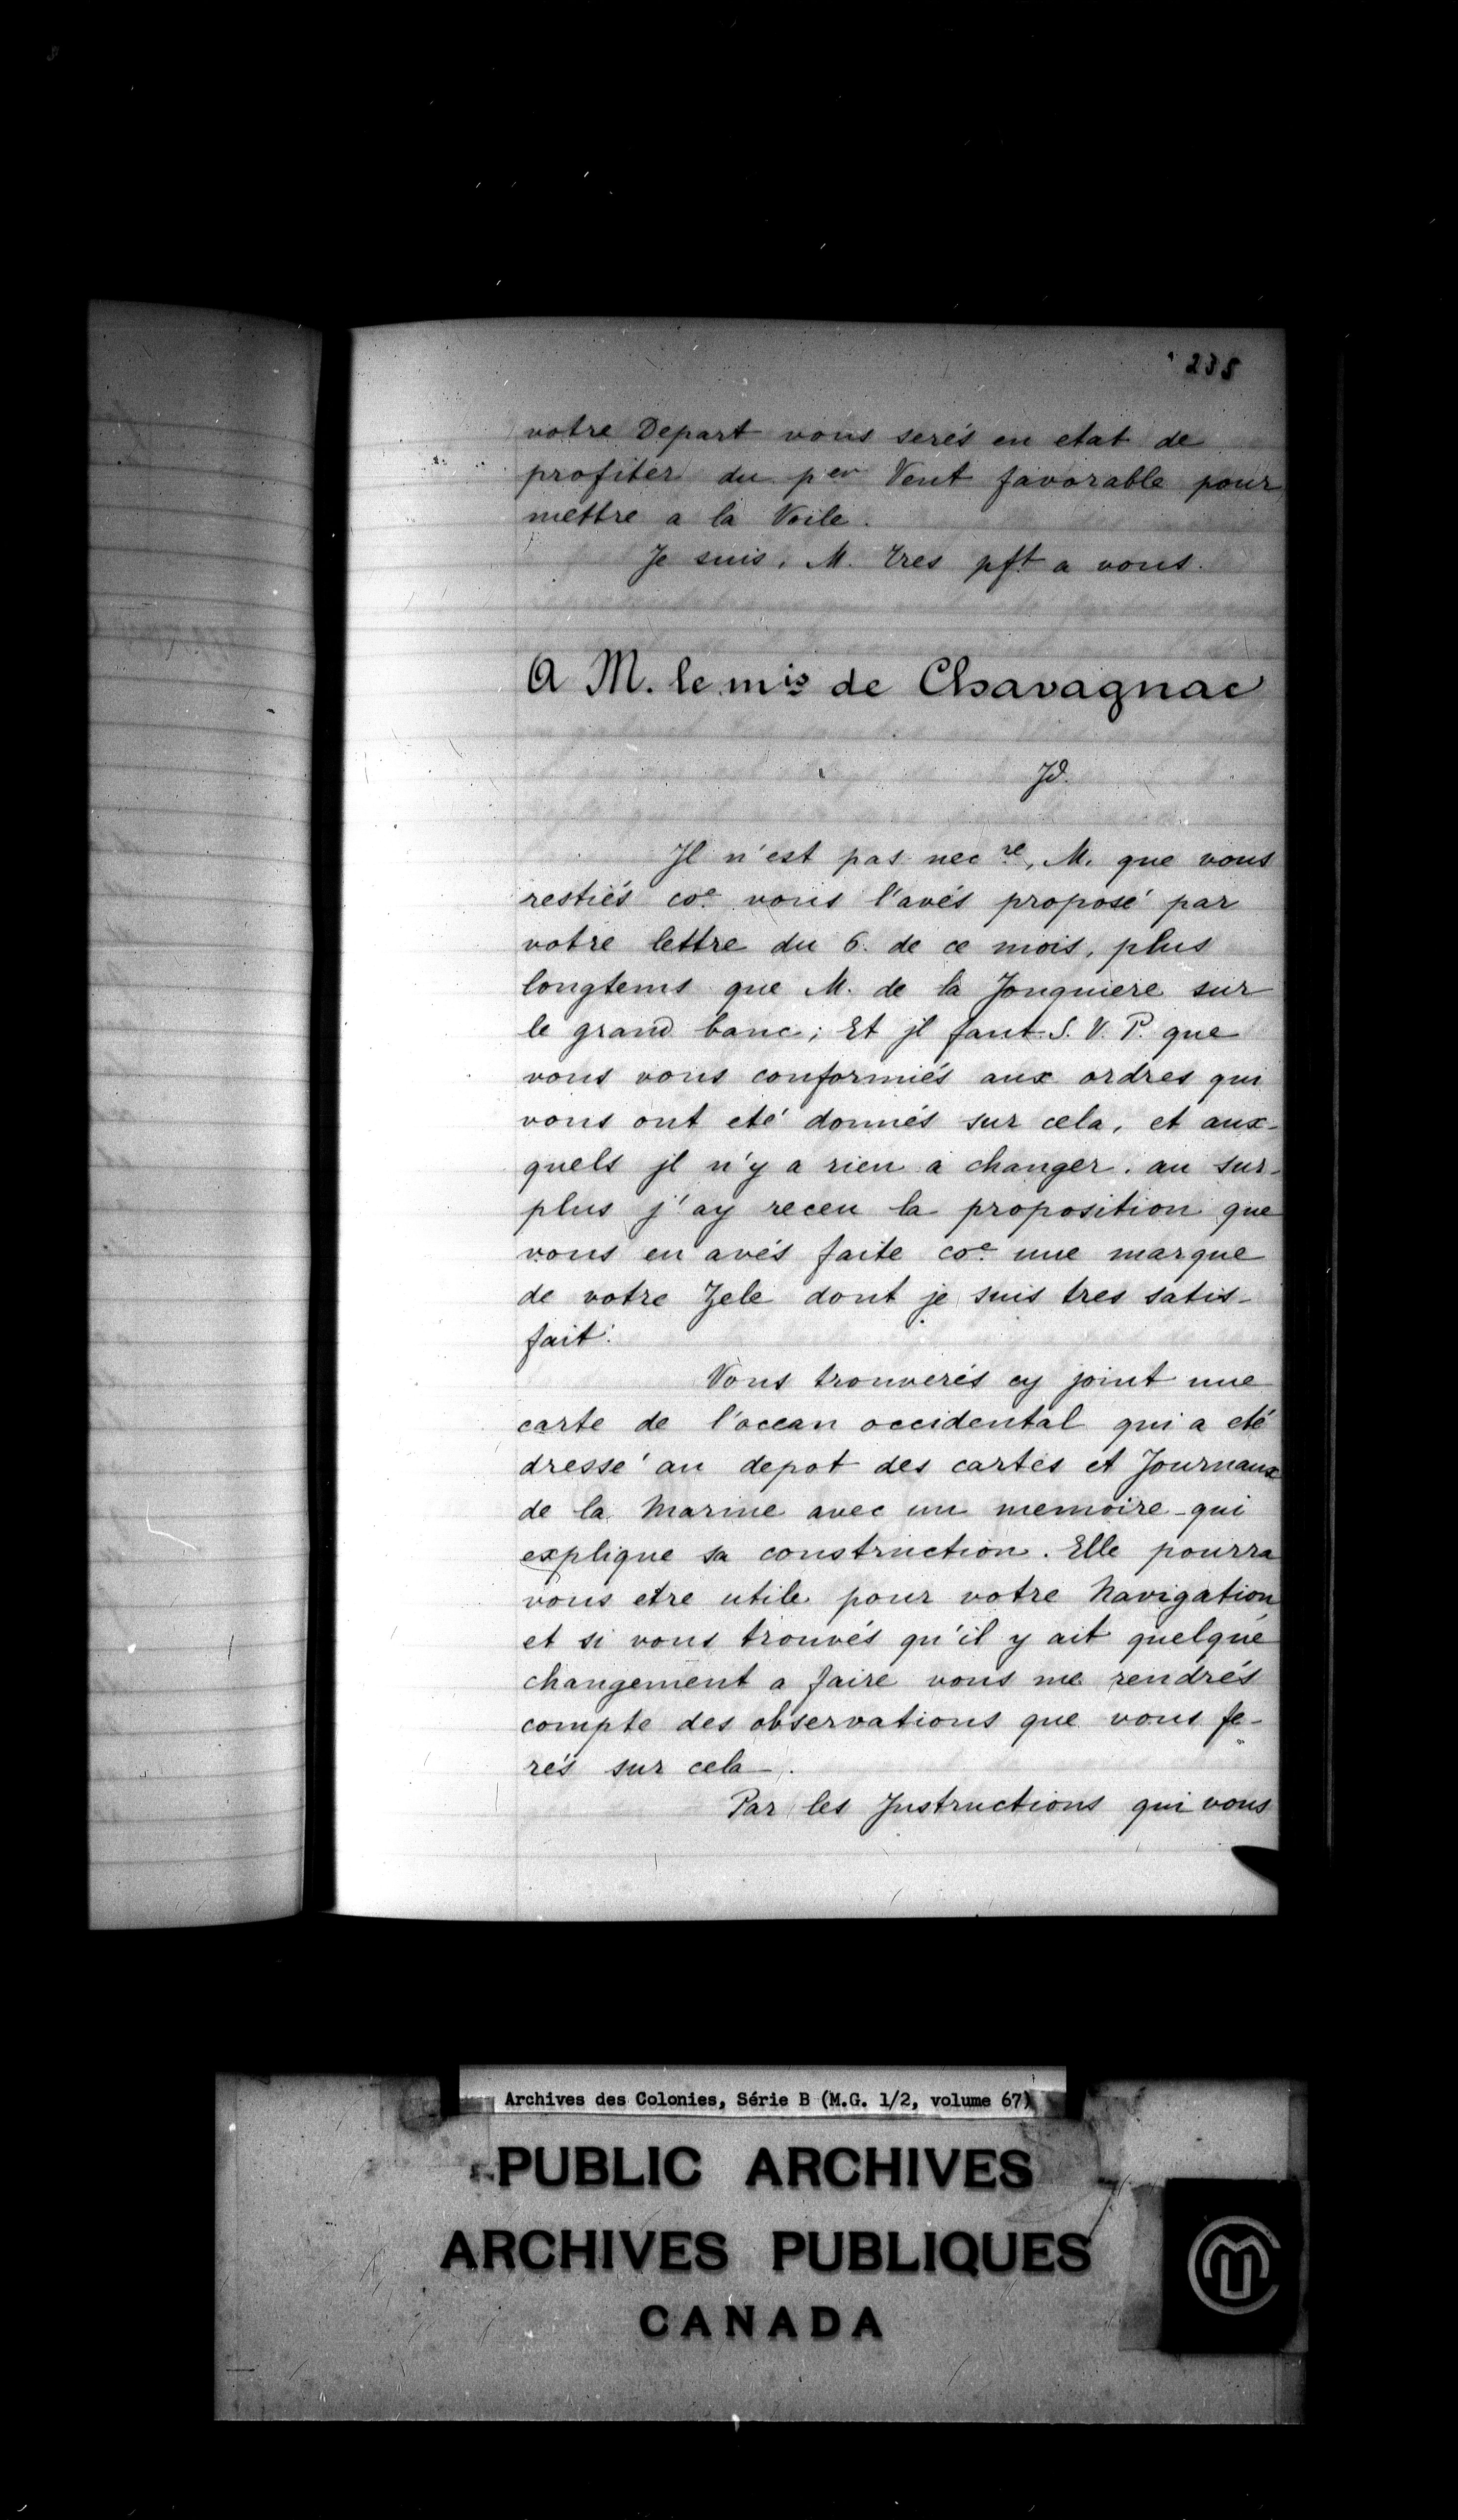 238
votre Depart vous serés en etat de
profiter du per Vent favorable pour
mettre a la Voile.
Je suis, M. tres pft a vous.
A M. le mis de Chavagnac
Jd.
Jl n'est pas necre, M. que vous
restiés coe vous l'avés proposé par
votre lettre du 6. de ce mois, plus
longtems que M. de la Jonquiere sur
le grand banc; Et jl faut S. V. P. que
vous vous conformiés aux ordres qui
vous ont eté donnés sur cela, et aux-
quels jl n'y a rien a changer. au sur-
plus j'ay receu la proposition que
vous en avés faite coe une marque
de votre Zele dont je suis tres satis-
fait.
Vous trouverés cy joint une
carte de l'ocean occidental qui a eté
dressé au depot des cartes et Journaux
de la Marine avec un memoire qui
explique sa construction. Elle pourra
vous etre utile pour votre Navigation,
et si vous trouvés qu'il y ait quelque
changement a faire vous me rendrés
compte des observations que vous fe-
rés sur cela.
Par les Jnstructions qui vous
Archives des Colonies, Série B (M.G. 1/2, volume 67)
PUBLIC ARCHIVES
ARCHIVES PUBLIQUES
CANADA